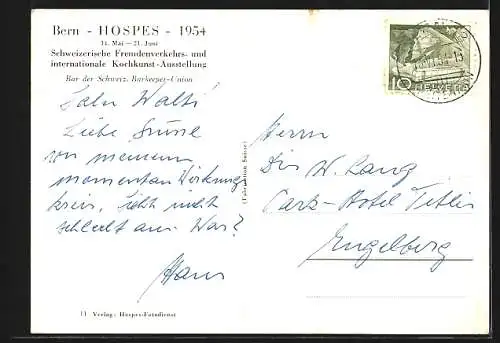 Bern - HOSPES - 1954
14. Mai — 21. Juni
Schweizerische Fremdenverkehrs- und
internationale Kochkunst-Ausstellung
Bar der Schweiz. Barkeeper-Union
Salu Walti
Liebe Grüsse
von meinem
momentan Wirkungs
kreis, sieht nicht
schlecht aus. Was?
Hans
11 Verlag: Hospes-Fotodienst
(Fabrikation Suisse)
10 HELVETIA
Herrn
Dir W. Lang
Park-Hotel Titlis
Engelberg